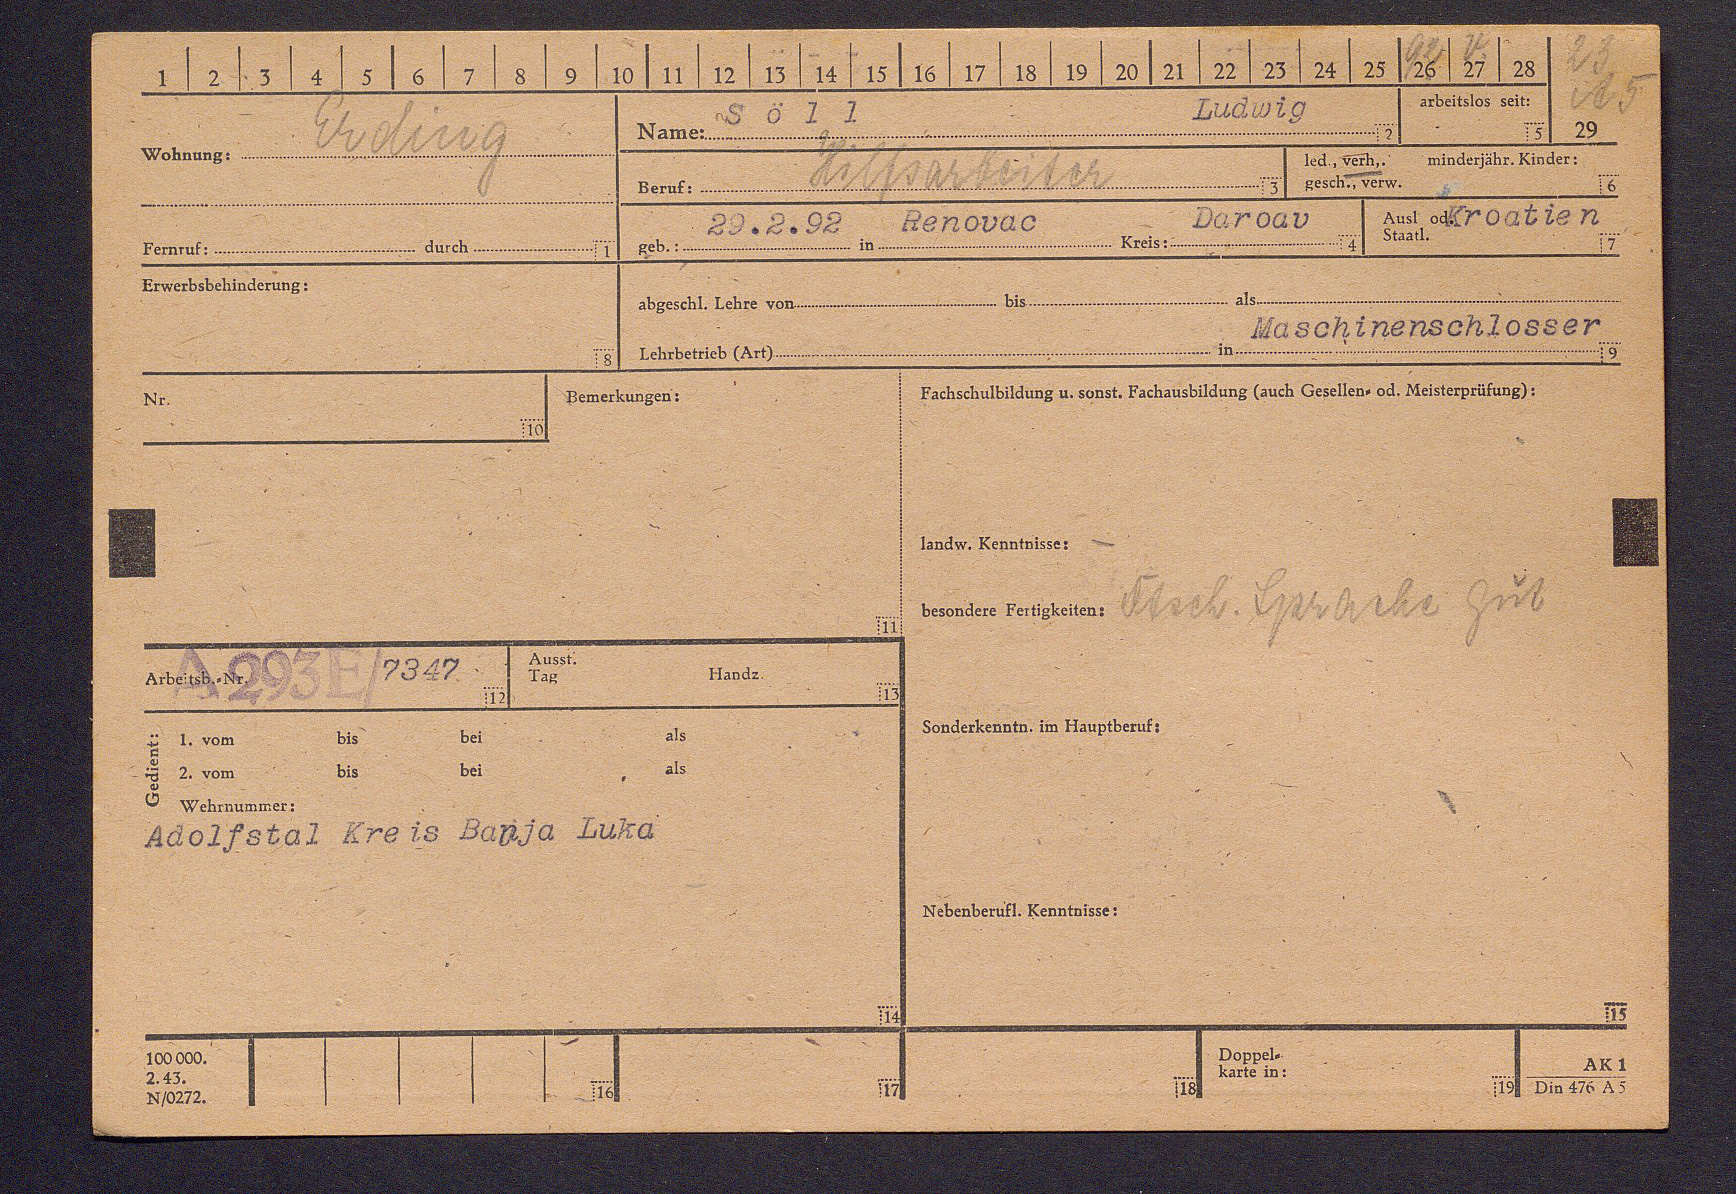 1 2 3 4 5 6 7 8 9 10 11 12 13 14 15 16 17 18 19 20 21 22 23 24 25 26 27 28
23
A 5
29
Wohnung: Erding
Fernruf: durch 1
Name: Söll Ludwig 2
arbeitslos seit: 5
Beruf: Hilfsarbeiter 3
led., verh,. minderjähr. Kinder:
gesch., verw. 6
geb.: 29.2.92 in Renovac Kreis: Daroav 4
Ausl od. Kroatien
Staatl. 7
Erwerbsbehinderung: 8
abgeschl. Lehre von bis als
Maschinenschlosser
Lehrbetrieb (Art) in 9
Nr. 10
Bemerkungen: 11
Fachschulbildung u. sonst. Fachausbildung (auch Gesellen- od. Meisterprüfung):
landw. Kenntnisse: —
besondere Fertigkeiten: Dtsch. Sprache gut
Arbeitsb.-Nr. A 293E/7347 12
Ausst.
Tag Handz. 13
Gedient:
1. vom bis bei als
2. vom bis bei als
Wehrnummer:
Adolfstal Kreis Banja Luka
14
Sonderkenntn. im Hauptberuf:
Nebenberufl. Kenntnisse:
15
100 000.
2. 43.
N/0272.
16 17 18
Doppel-
karte in: 19
AK 1
Din 476 A 5